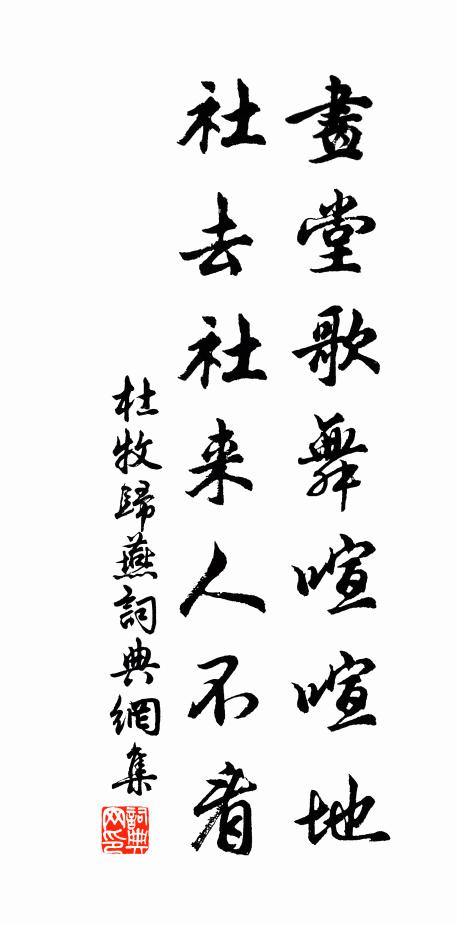 畫堂歌舞喧喧地
社去社来人不看
杜牧歸燕詞典網集
詞典网印